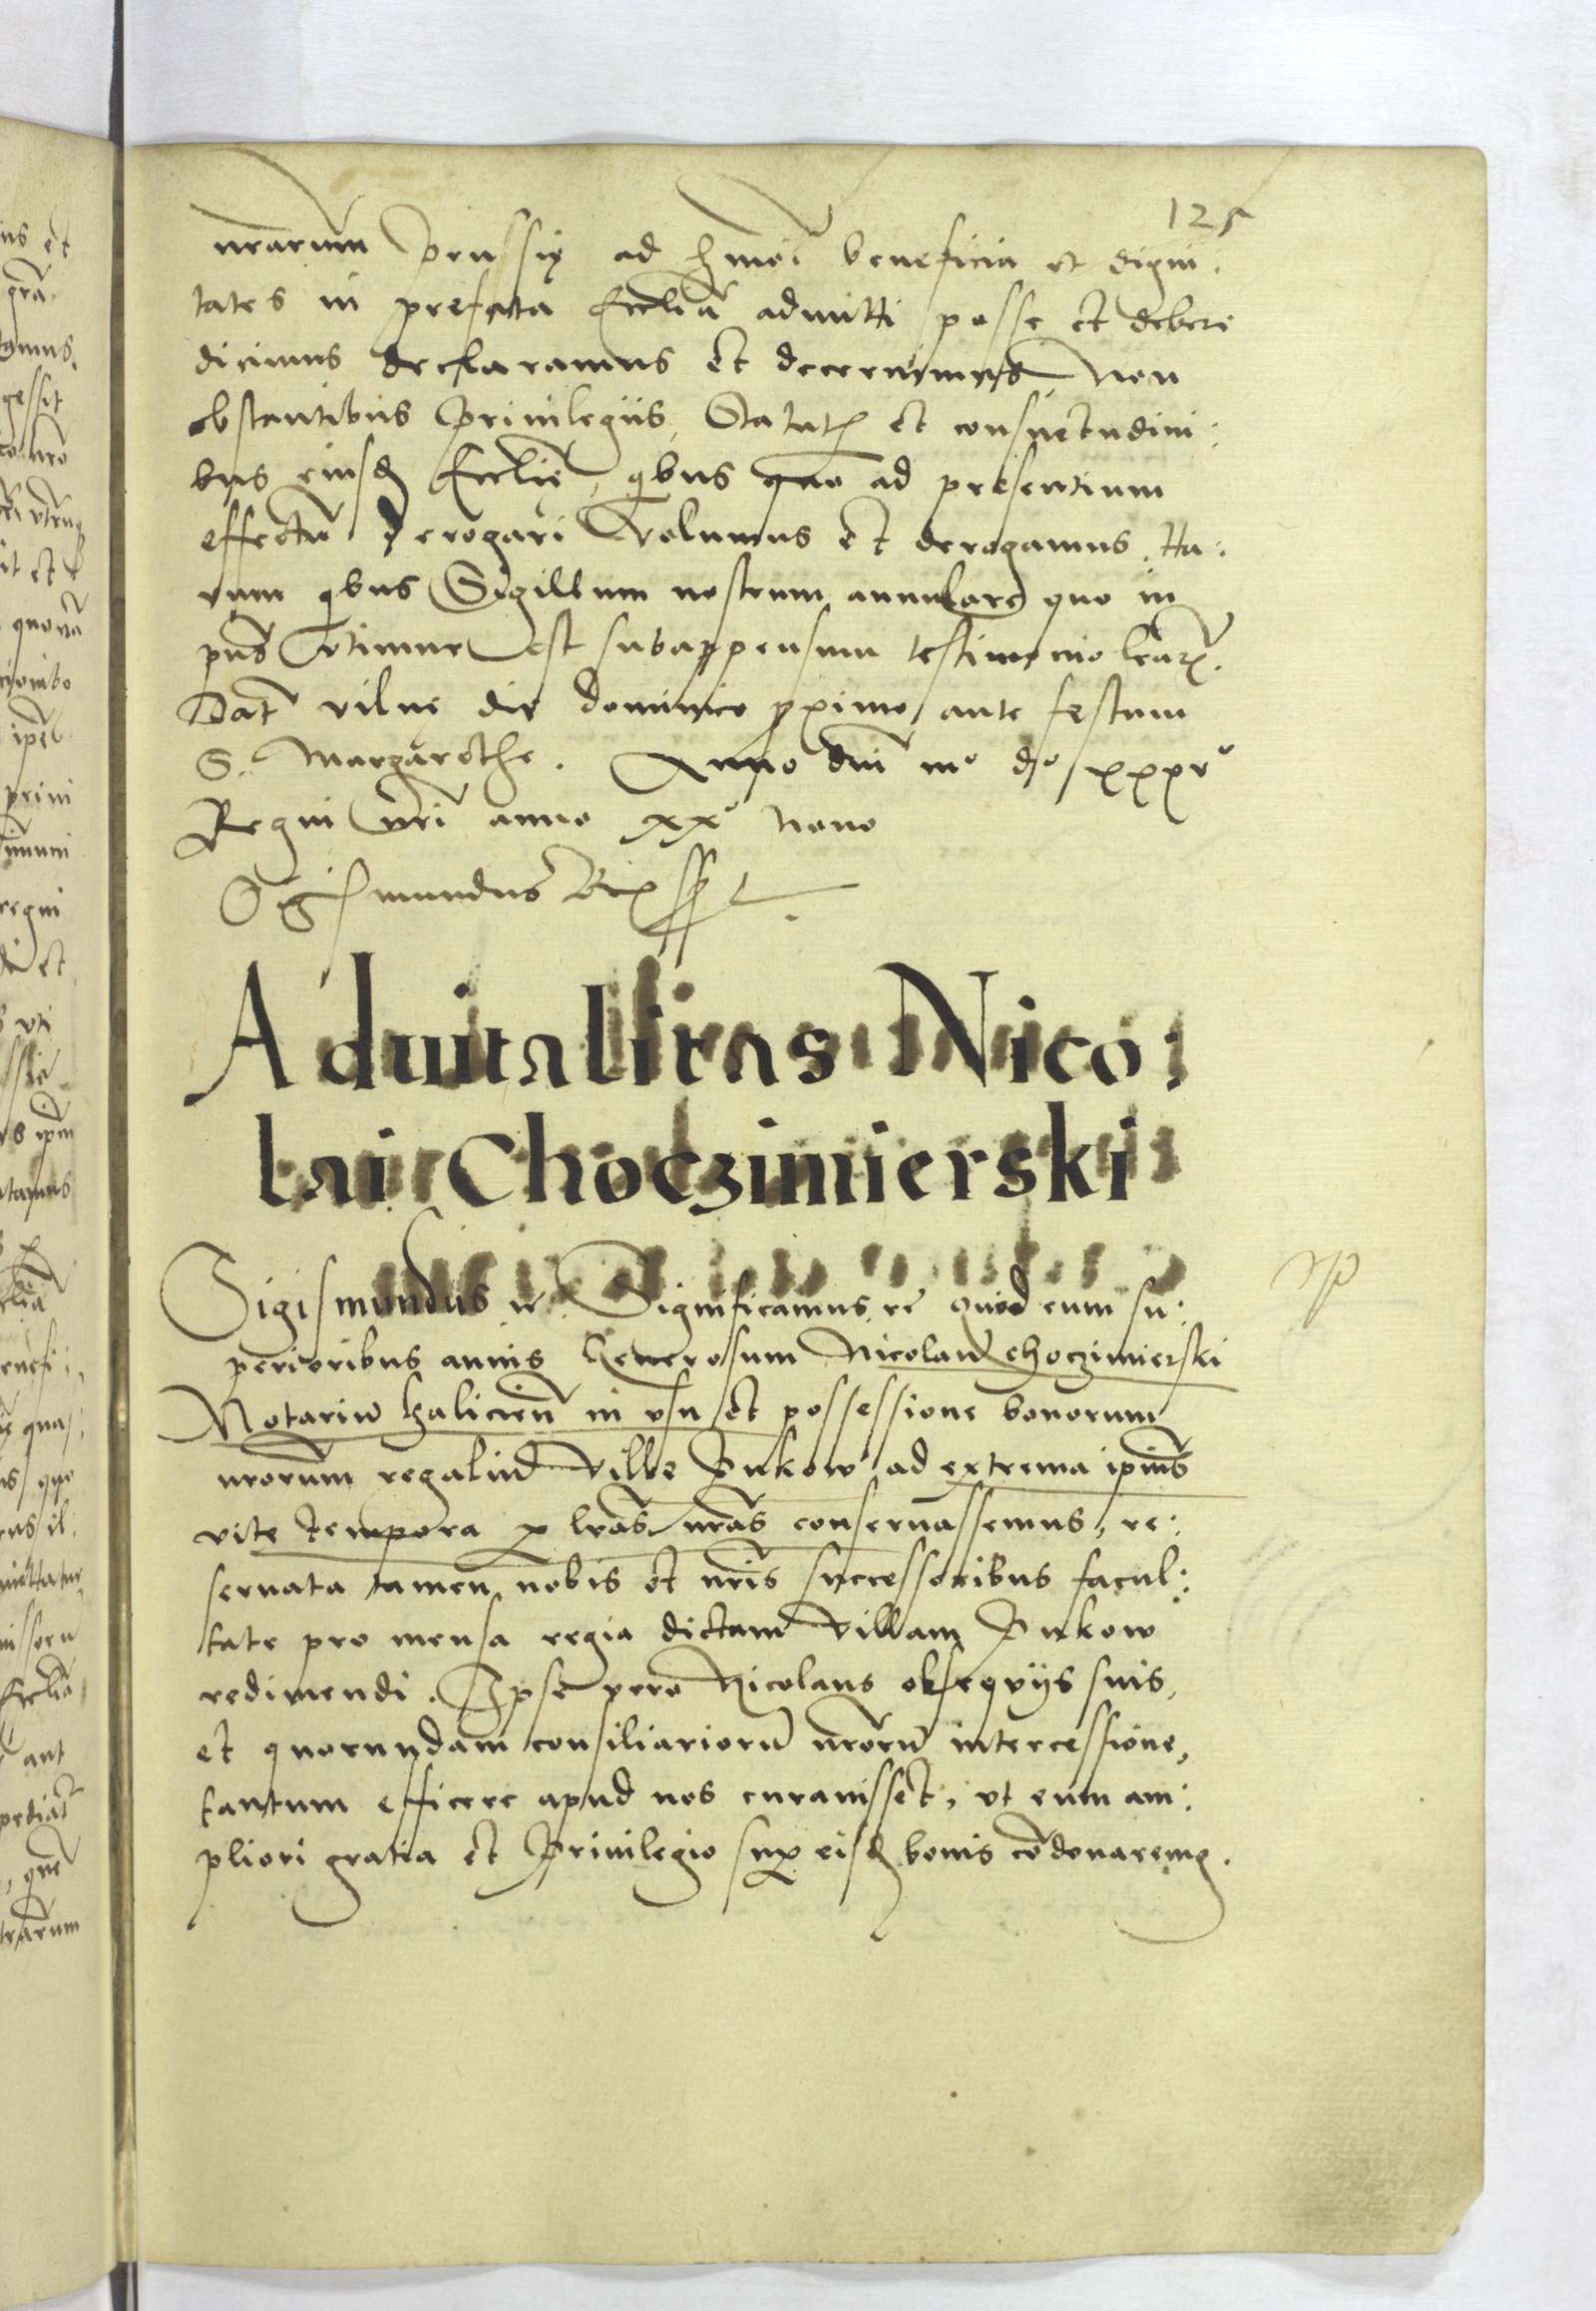 125
nrarum Prussię ad hmoi beneficia et digni:
tates in prefata Ecclia admitti posse et debere
dicimus declaramus et decernimus Non
obstantibus Privilegiis, Statutis et consuetudini:
bus eiusd Ecclię, qbus quo ad presentium
effectu derogari Volumus et derogamus. Ha:
rum qbus Sigillum nostrum annulare quo in
pns vtimur est subappensum testimonio lrarum.
Dat vilnę die dominico proximo ante festum
S. Margarethe. Anno dni mº dº xxxvº
Regni nri anno xxº nono
Sigismundus Rex sst
Aduitalitas Nico:
lai Choczimierski
Sigismundus etc. Significamus etc quod cum su:
perioribus annis Generosum Nicolaum choczimierski
Notariu halicien in vsu et possessione bonorum
nrorum regaliu Ville Pukow ad extrema ipius
vite tempora per lras nras conseruassemus, re:
seruata tamen nobis et nris successoribus facul:
tate pro mensa regia dictam Villam Pukow
redimendi. Ipse vero Nicolaus obsequijs suis,
et quorundam consiliarioru nroru intercessione,
tantum efficere apud nos curauisset, vt eum am:
pliori gratia et Priuilegio super eisd bonis codonaremus.